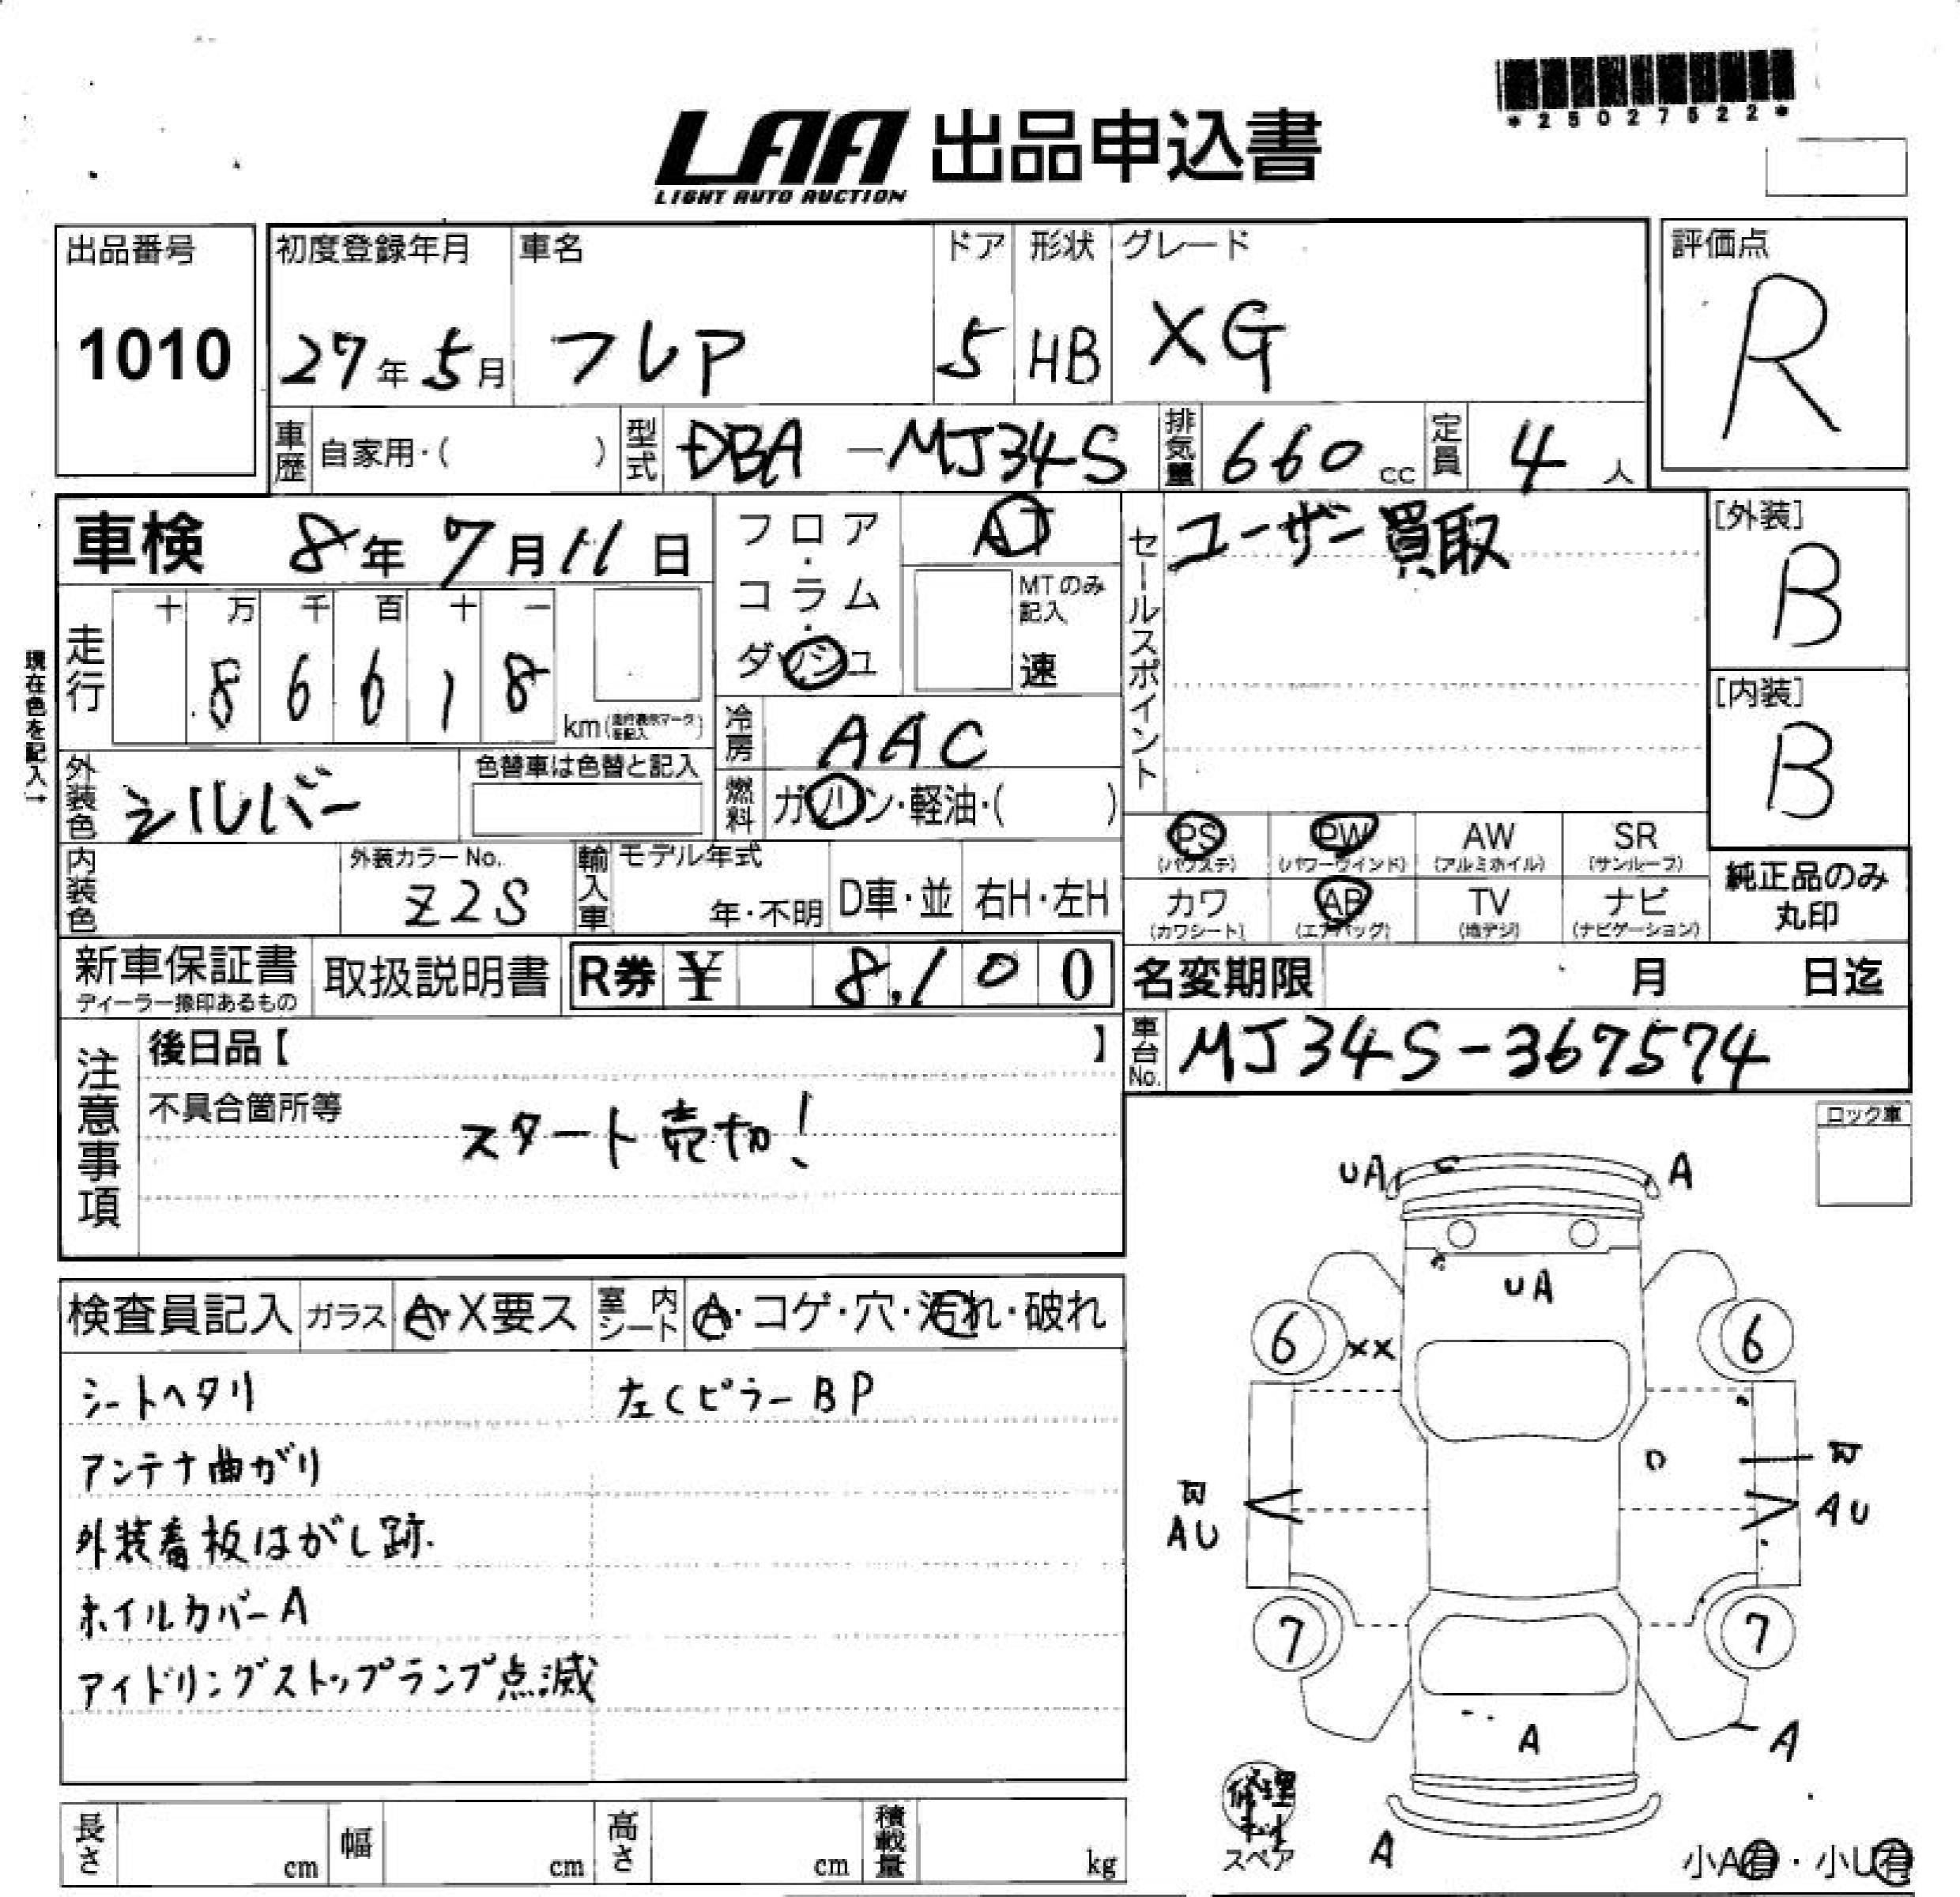 *25027522*
LAA 出品申込書
LIGHT AUTO AUCTION
出品番号
1010
初度登録年月
27年5月
車名
フレア
ドア
5
形状
HB
グレード
XG
評価点
R
車歴 自家用・( )
型式 DBA-MJ34S
排気量 660cc
定員 4人
車検 8年7月11日
フロア・コラム・ダッシュ
AT
MTのみ記入
速
セールスポイント
ユーザー買取
[外装]
B
[内装]
B
現在色を記入→
走行
十 万 千 百 十 一
8 6 6 1 8
km(走行表示マークを記入)
冷房 AAC
燃料 ガソリン・軽油・( )
外装色 シルバー
色替車は色替と記入
PS AW SR
PW
(パワステ) (パワーウインド) (アルミホイル) (サンルーフ)
カワ AB TV ナビ
(カワシート) (エアバッグ) (地デジ) (ナビゲーション)
純正品のみ
丸印
内装色
外装カラーNo.
Z2S
輸入車
モデル年式
年・不明
D車・並
右H・左H
新車保証書
ディーラー捺印あるもの
取扱説明書
R券 ¥ 8,100
名変期限 月 日迄
車台No. MJ34S-367574
注意事項
後日品【 】
不具合箇所等
スタート売切!
ロック車
検査員記入
ガラス A・X要ス
室内シート A・コゲ・穴・汚れ・破れ
シートヘタリ
左CピラーBP
アンテナ曲がり
外装看板はがし跡
ホイルカバーA
アイドリングストップランプ点滅
UA
A
UA
6
XX
6
AU
AU
7
7
A
A
修理キット
スペア
A
小A有・小U有
長さ cm
幅 cm
高さ cm
積載量 kg